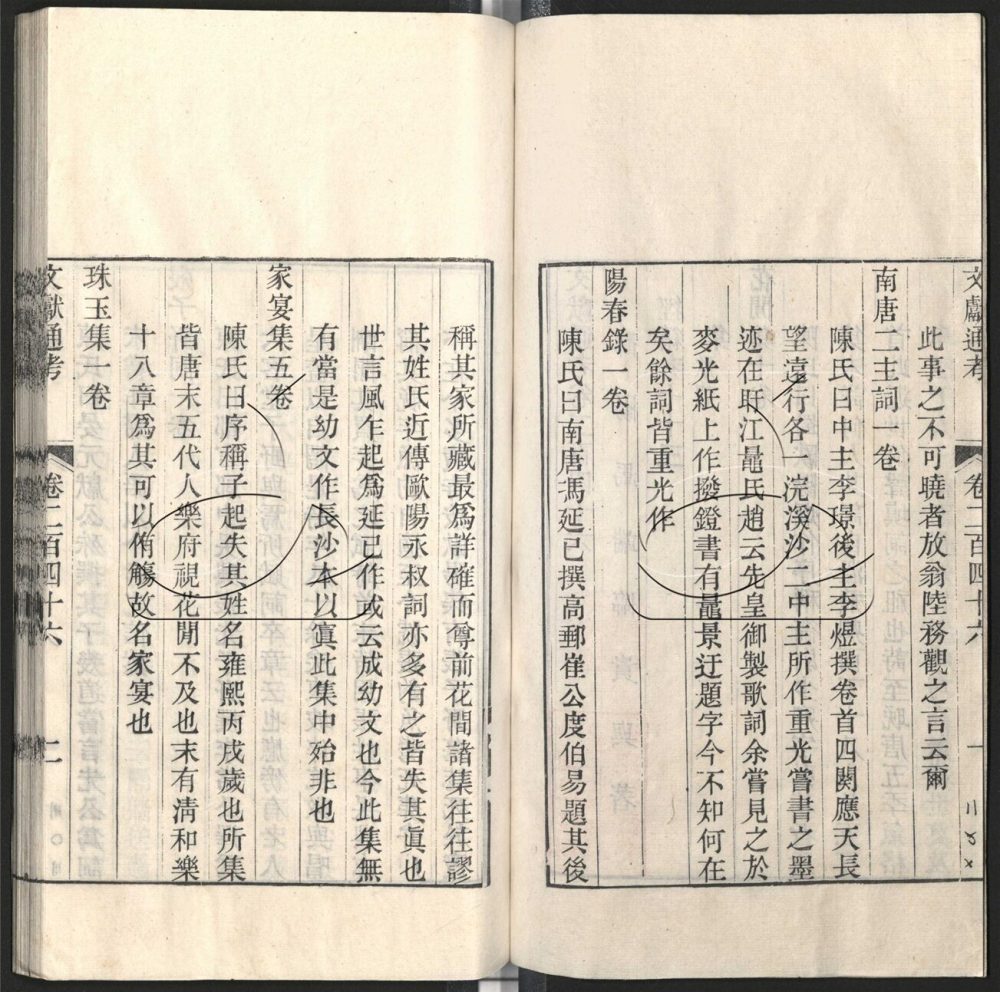 文獻通考 卷二百四十六 一
此事之不可曉者放翁陸務觀之言云爾
南唐二主詞一卷
陳氏曰中主李璟後主李煜撰卷首四闋應天長
望遠行各一浣溪沙二中主所作重光嘗書之墨
迹在盱江鼂氏趙云先皇御製歌詞余嘗見之於
麥光紙上作撥鐙書有鼂景迂題字今不知何在
矣餘詞皆重光作
陽春錄一卷
陳氏曰南唐馮延已撰高郵崔公度伯易題其後
稱其家所藏最爲詳確而尊前花間諸集往往謬
其姓氏近傳歐陽永叔詞亦多有之皆失其眞也
世言風乍起爲延已作或云成幼文也今此集無
有當是幼文作長沙本以寘此集中殆非也
家宴集五卷
陳氏曰序稱子起失其姓名雍熙丙戌歲也所集
皆唐末五代人樂府視花閒不及也末有清和樂
十八章爲其可以侑觴故名家宴也
珠玉集一卷
文獻通考 卷二百四十六 二